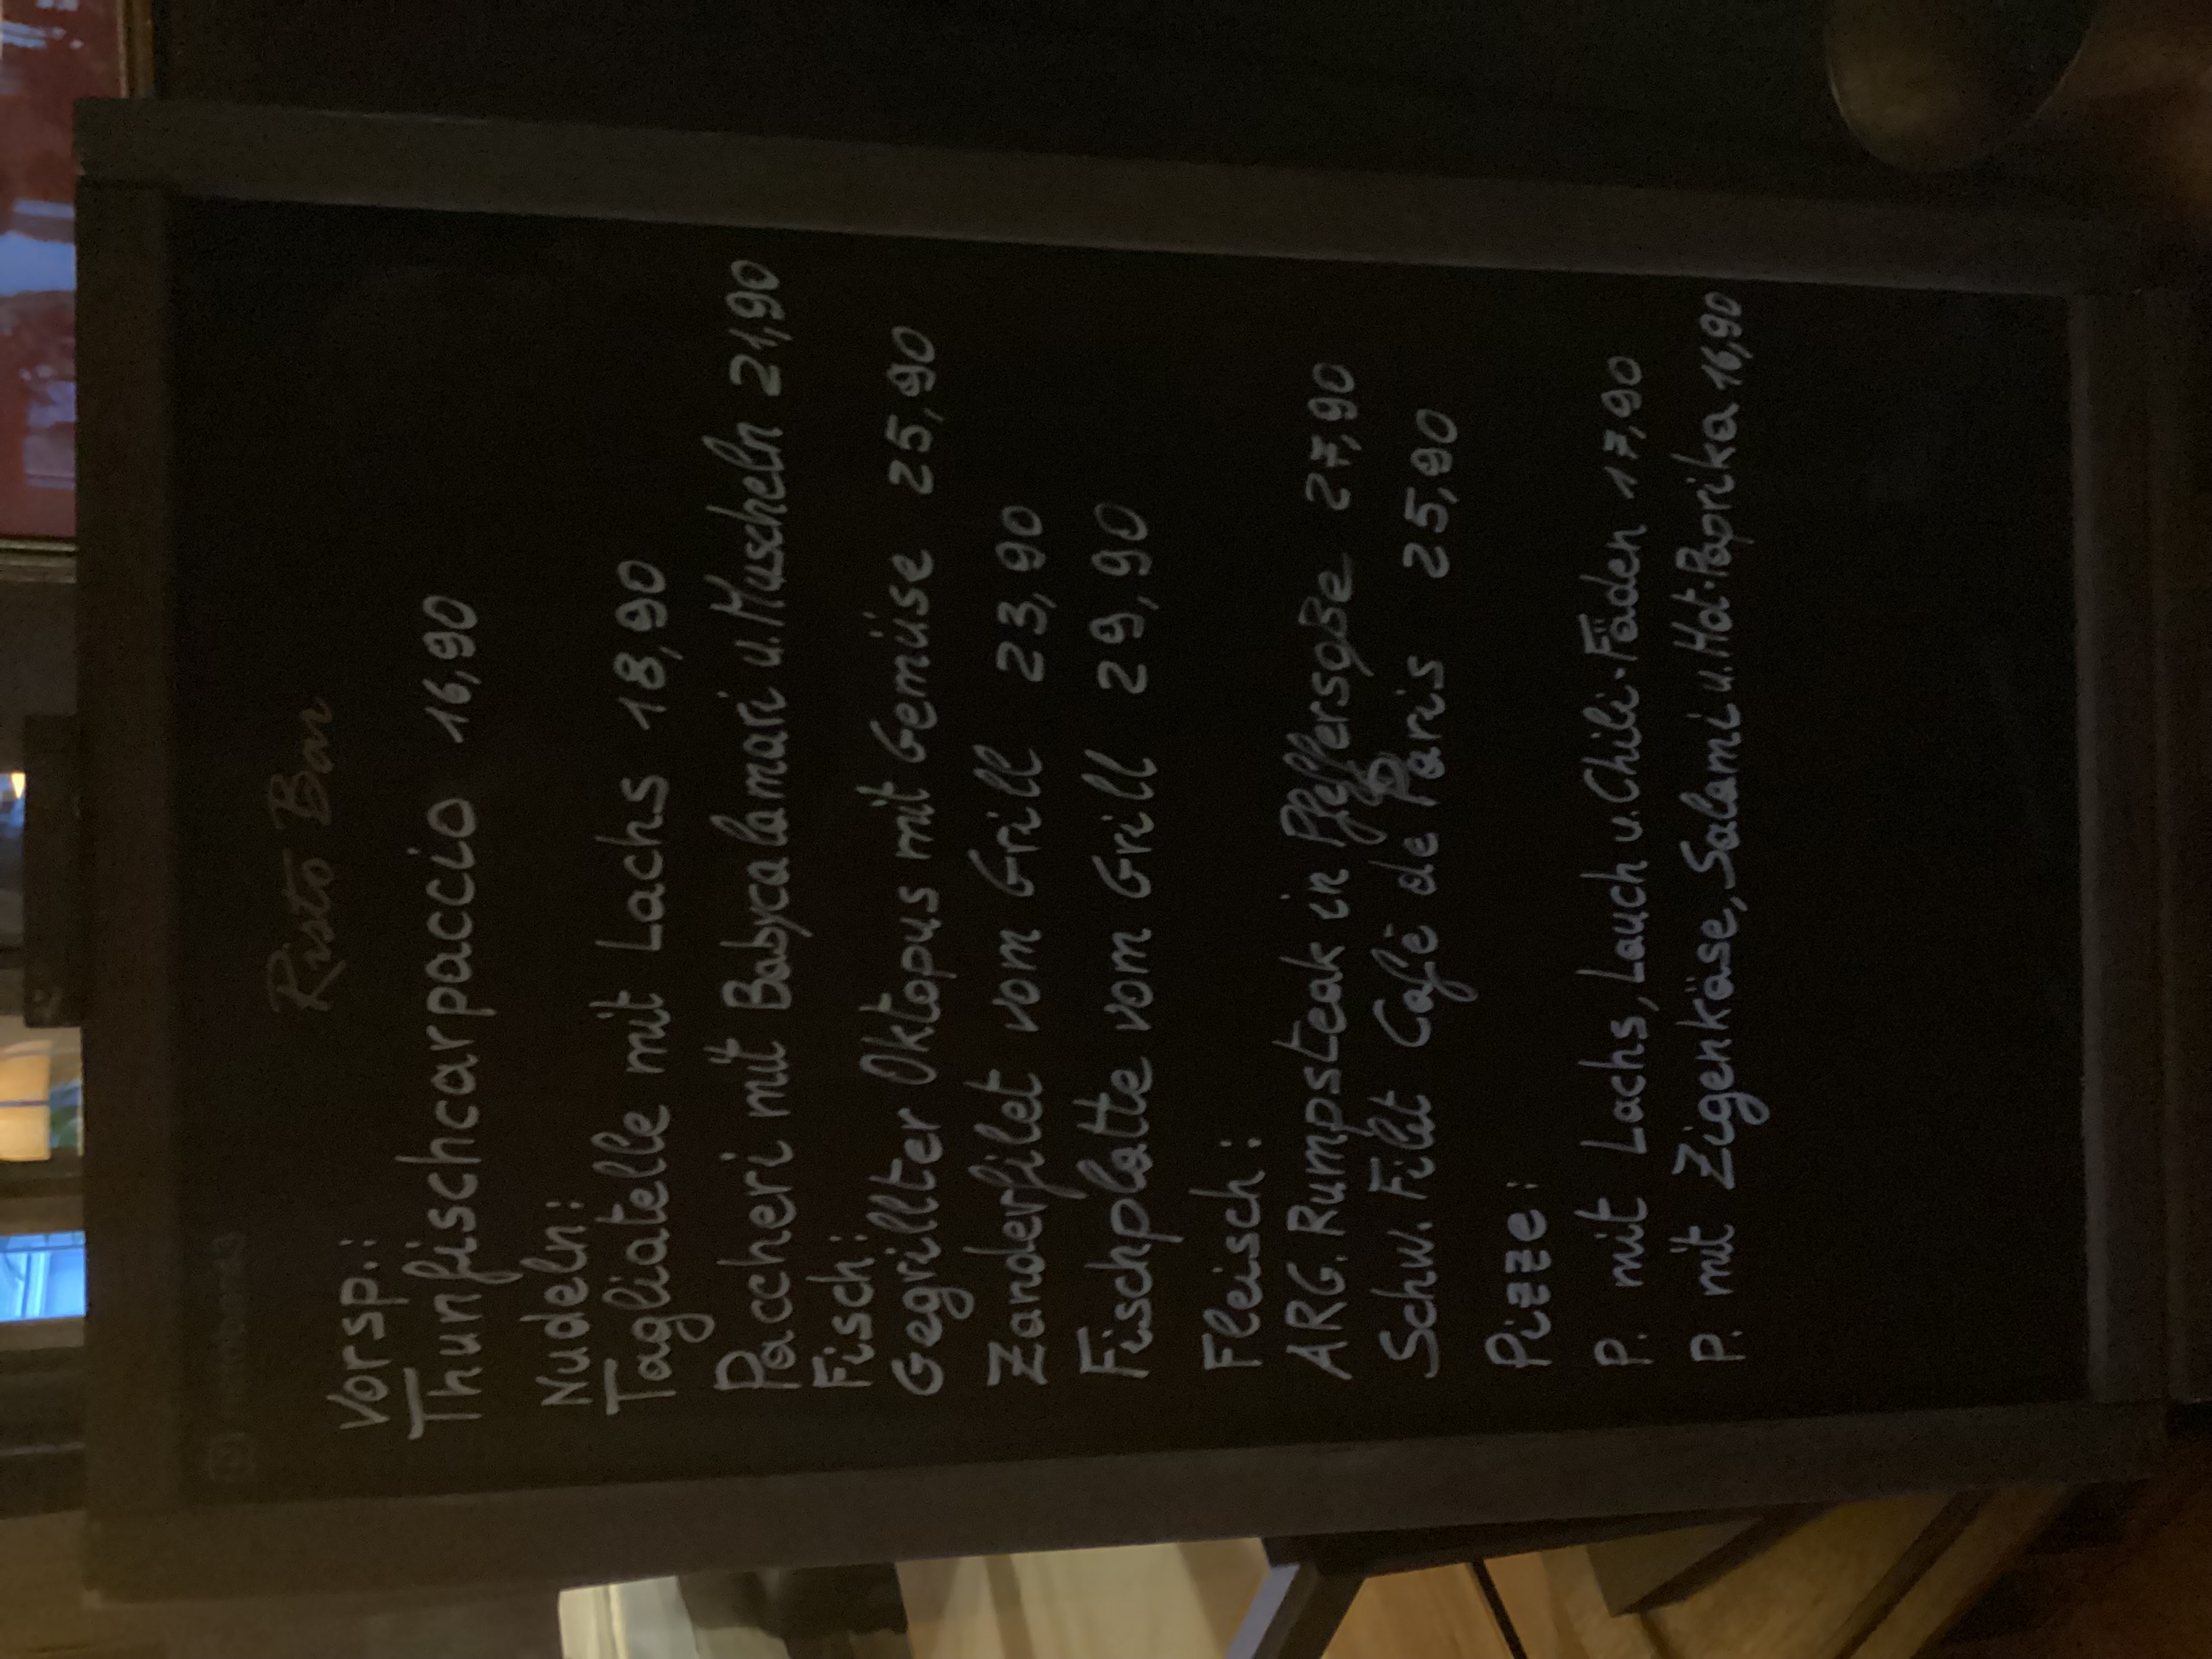 Risto Bar
Vorsp.:
Thunfischcarpaccio 16,90
Nudeln:
Tagliatelle mit Lachs 18,90
Paccheri mit Babycalamari u. Muscheln 21,90
Fisch:
Gegrillter Oktopus mit Gemüse 25,90
Zanderfilet vom Grill 23,90
Fischplatte vom Grill 29,90
Fleisch:
ARG. Rumpsteak in Pfeffersoße 27,90
Schw. Filt Cafè de Paris 25,90
Pizze:
P. mit Lachs, Lauch u. Chili-Fäden 17,90
P. mit Zigenkäse, Salami u. Hot-Paprika 16,90